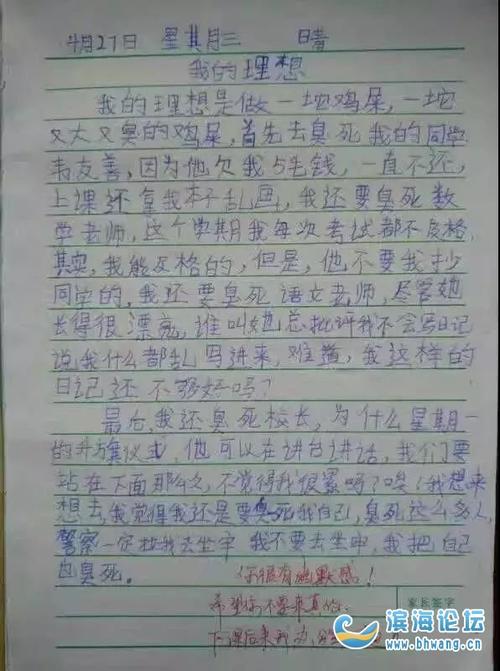 4月27日 星其月三 晴
我的理想
我的理想是做一坨鸡屎,一坨
又大又臭的鸡屎,首先去臭死我的同学
韦友善,因为他欠我5毛钱,一直不还,
上课还拿我本子乱画,我还要臭死数
学老师,这个学期我每次考试都不及格,
其实,我能及格的,但是,他不要我抄
同学的,我还要臭死语文老师,尽管她
长得很漂亮,谁叫她总批评我不会写日记
说我什么都乱写进来,难道,我这样的
日记还不够好吗?
最后,我还臭死校长,为什么星期一
的升旗仪式,他可以在讲台讲话,我们要
站在下面那么久,不觉得我很累吗?唉!我想来
想去,我觉得我还是要臭死我自己,臭死这么多人,
警察一定拉我去坐牢,我不要去坐牢,我把自己
也臭死。
你很有幽默感!
希望你不要来真的.
下课后来我办
家长签字
滨海论坛
www.bhwang.cn